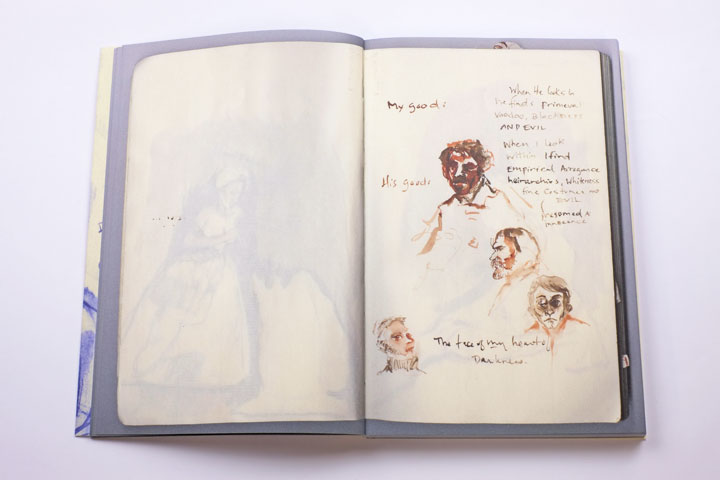 My gods
His gods
When He looks in
he finds primeval
voodoo, Blackness
AND EVIL
When I look
within I find
Empirical Arrogance
heirarchies, Whiteness
fine Costumes and
EVIL
The face of my heart of
Darkness.